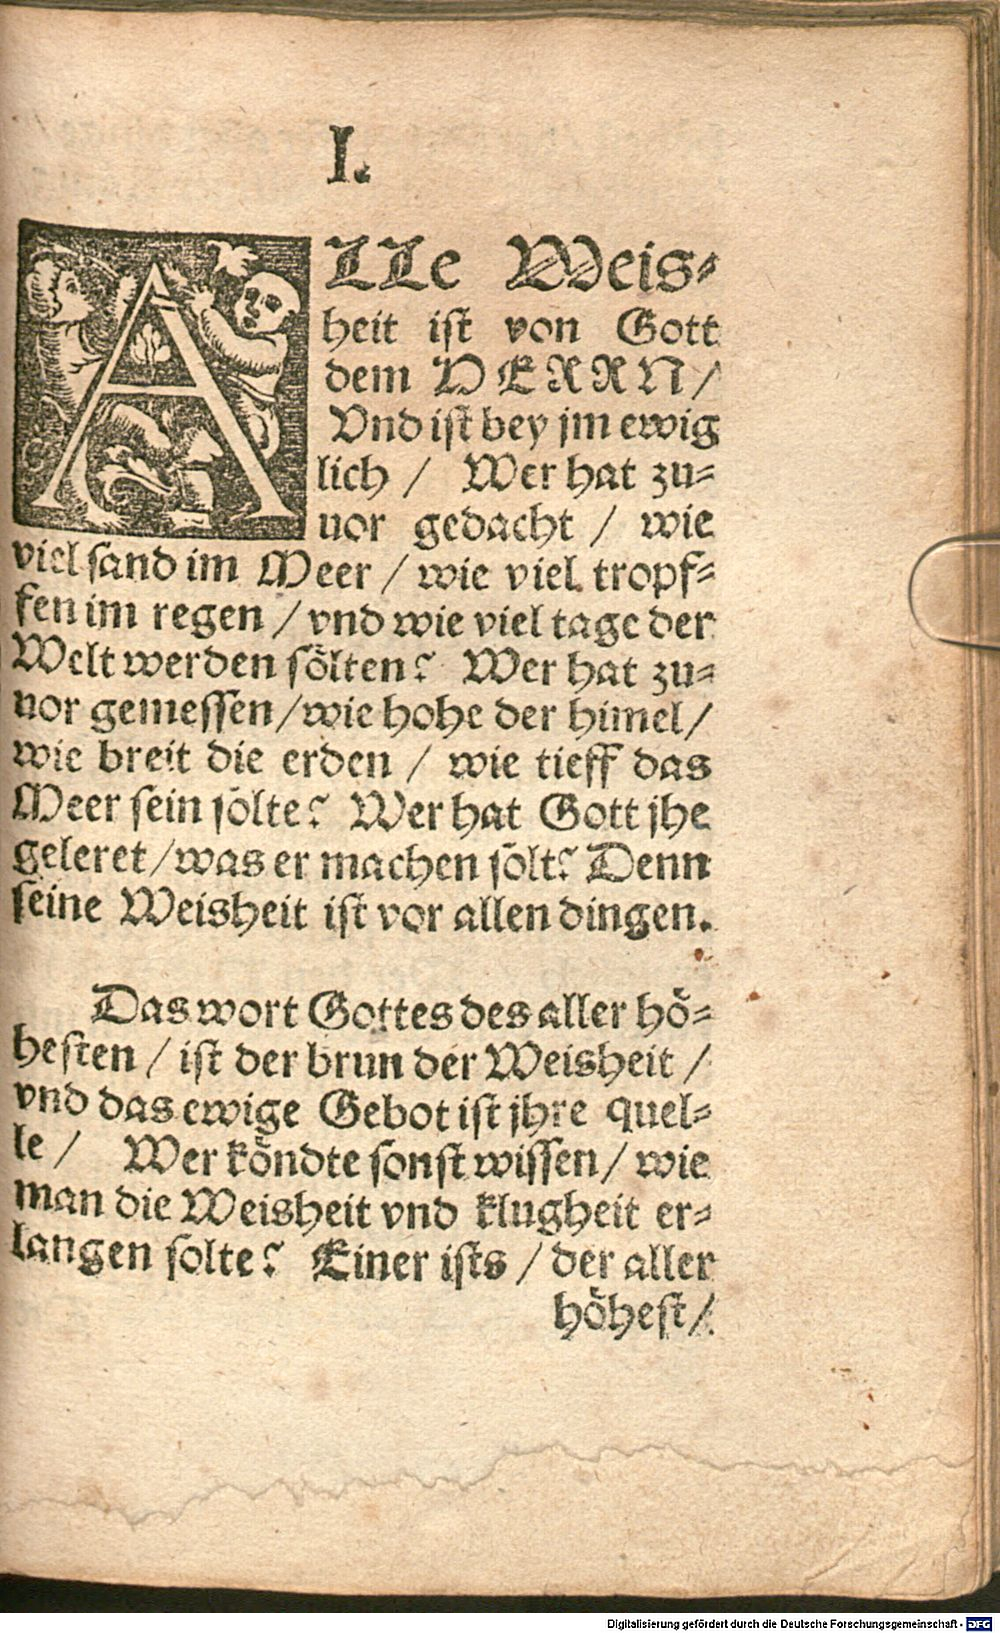 I.
ALLe Weis⸗
heit ist von Gott
dem HERRN /
Vnd ist bey jm ewig
lich / Wer hat zu⸗
uor gedacht / wie
viel sand im Meer / wie viel tropf⸗
fen im regen / vnd wie viel tage der
Welt werden sölten? Wer hat zu⸗
uor gemessen / wie hohe der himel /
wie breit die erden / wie tieff das
Meer sein solte? Wer hat Gott jhe
geleret / was er machen solt? Denn
seine Weisheit ist vor allen dingen.
Das wort Gottes des aller hö⸗
hesten / ist der brun der Weisheit /
vnd das ewige Gebot ist jhre quel⸗
le / Wer köndte sonst wissen / wie
man die Weisheit vnd klugheit er⸗
langen solte? Einer ists / der aller
höhest /
Digitalisierung gefördert durch die Deutsche Forschungsgemeinschaft - DFG